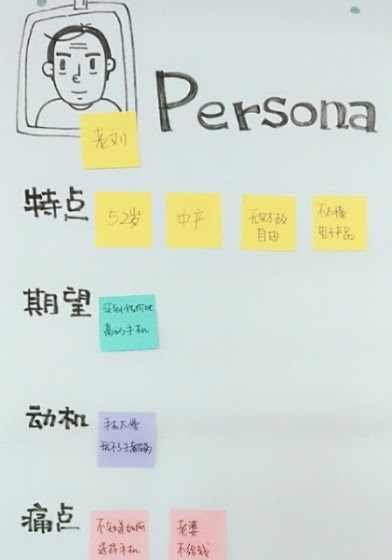 Persona
老刘
特点
52岁
中产
无财政
自由
不太懂
电子产品
期望
买到性价比
高的手机
动机
手机太慢
玩不了
痛点
不知道如何
选择手机
老婆
不给钱